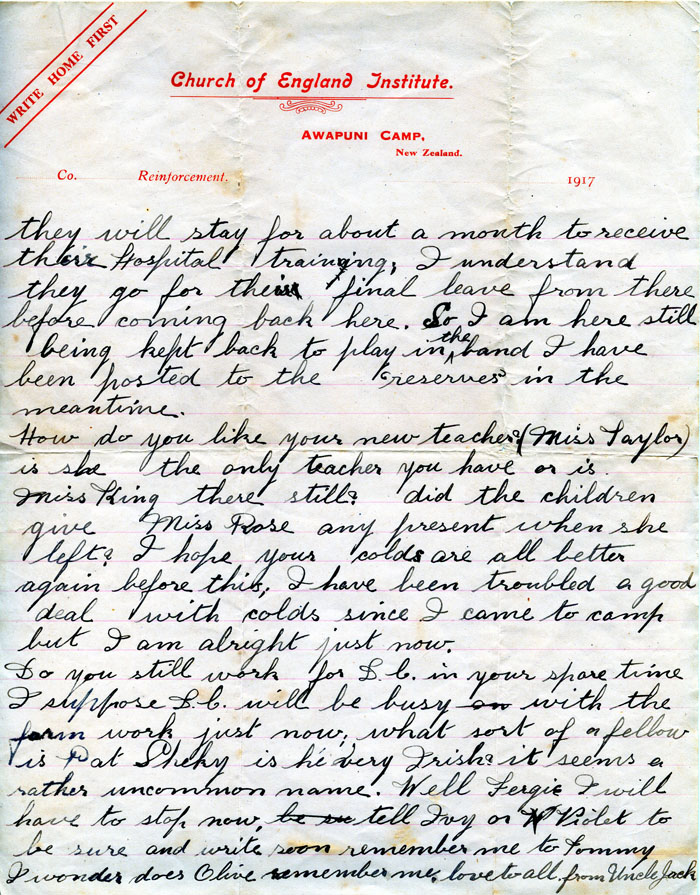 WRITE HOME FIRST
Church of England Institute.
AWAPUNI CAMP,
New Zealand.
Co. Reinforcement. 1917
they will stay for about a month to receive
their Hospital training, I understand
they go for their final leave from there
before coming back here. So I am here still
being kept back to play in the band I have
been posted to the "reserves" in the
meantime.
How do you like your new teacher? (Miss Taylor)
is she the only teacher you have or is
Miss King there still? did the children
give Miss Rose any present when she
left? I hope your colds are all better
again before this, I have been troubled a good
deal with colds since I came to camp
but I am alright just now.
Do you still work for D.C. in your spare time
I suppose D.C. will be busy on with the
farm work just now, what sort of a fellow
is Pat is he very Irish? it seems a
rather uncommon name. Well Fergie I will
have to stop now, be su tell Ivy or Violet to
be sure and write soon remember me to Tommy
I wonder does Olive remember me, love to all, from Uncle Jack